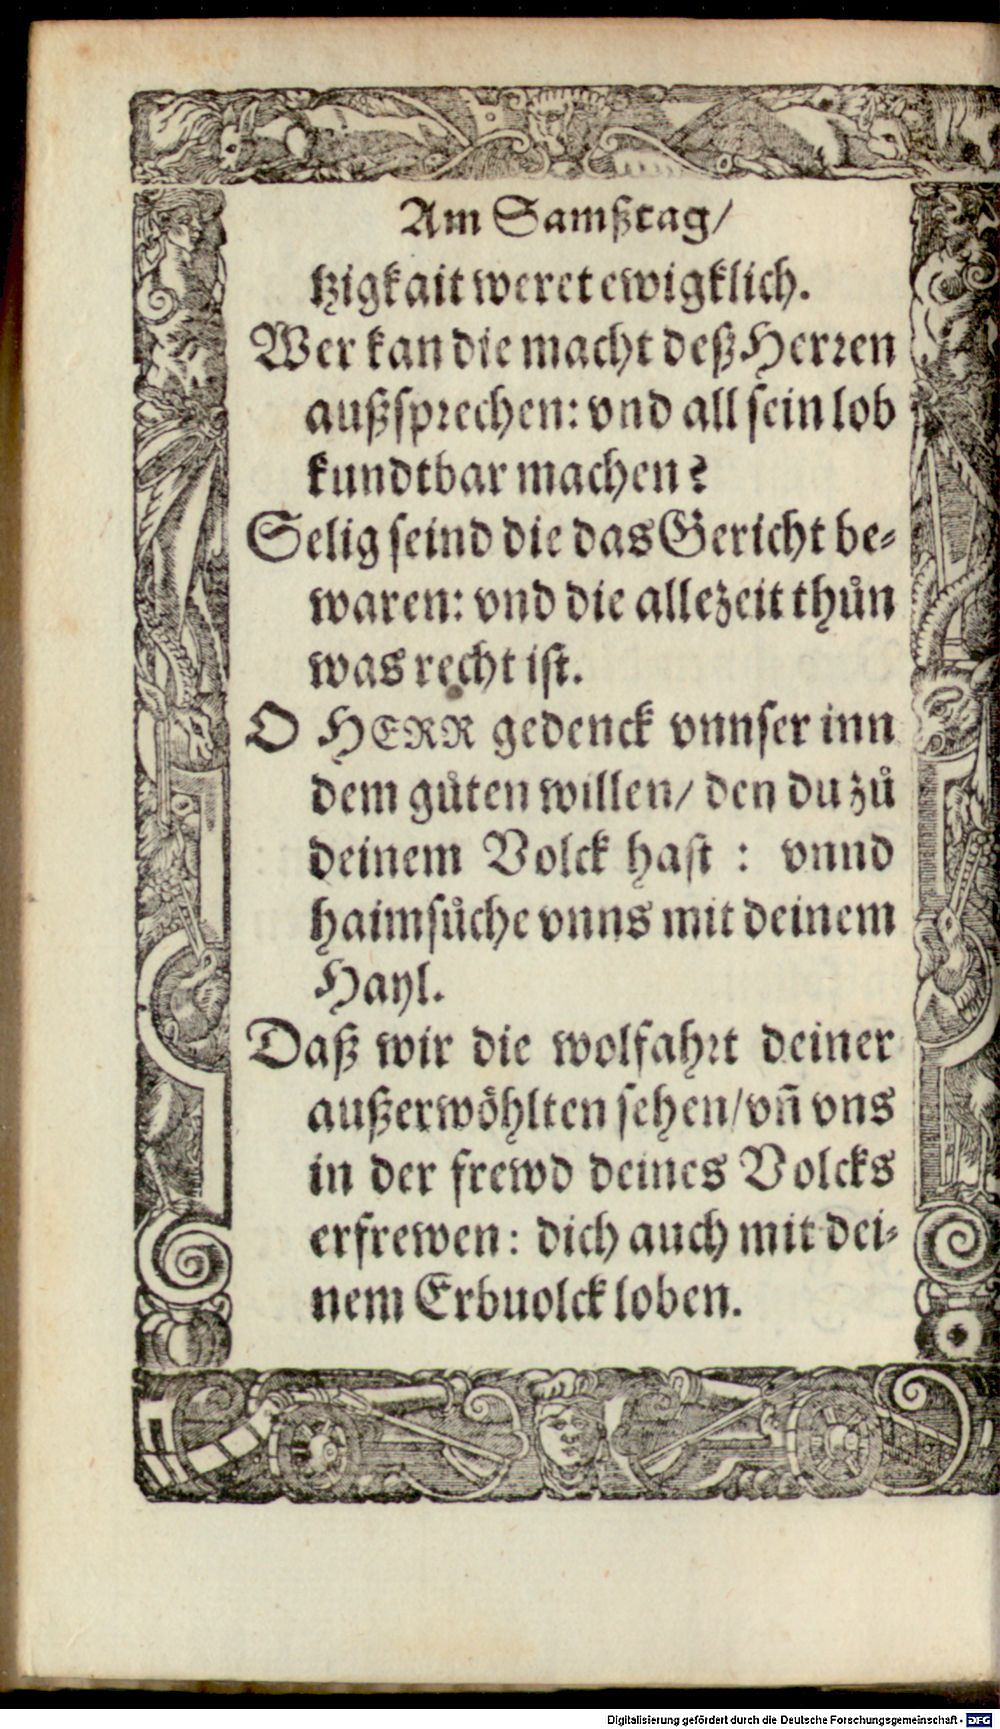 Am Samßtag/
tzigkait weret ewigklich.
Wer kan die macht deß Herren
außsprechen: vnd all sein lob
kundtbar machen?
Selig seind die das Gericht be-
waren: vnd die allezeit thůn
was recht ist.
O HERR gedenck vnnser inn
dem gůten willen/ den du zů
deinem Volck hast : vnnd
haimsůche vnns mit deinem
Hayl.
Daß wir die wolfahrt deiner
außerwöhlten sehen/ vñ vns
in der frewd deines Volcks
erfrewen: dich auch mit dei-
nem Erbuolck loben.
Digitalisierung gefördert durch die Deutsche Forschungsgemeinschaft - DFG